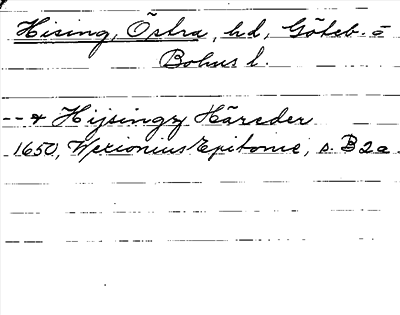 Hising, Östra, hd, Göteb. o
Bohus l.
-- & Hijsingz Häreder
1650, Wexionius Epitome, s. B2a.